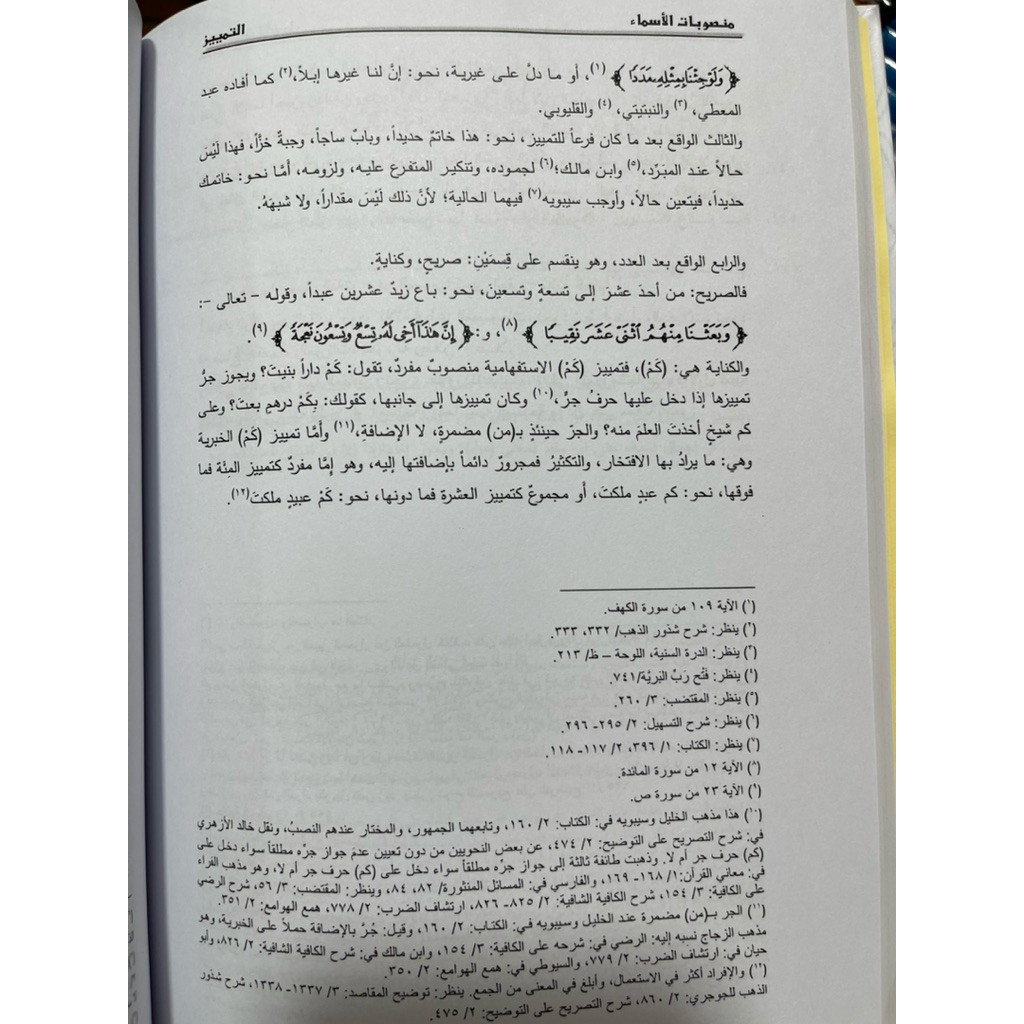 منصوبات الأسماء
التمييز
﴿وَلَوْ جِئْنَا بِمِثْلِهِ مَدَدًا﴾(١)، أو ما دلَّ على غيرية، نحو: إنَّ لنا غيرها إبلاً،(٢) كما أفاده عبد
المعطي،(٣) والنبتيتي،(٤) والقليوبي.
والثالث الواقع بعد ما كان فرعاً للتمييز، نحو: هذا خاتمٌ حديداً، وبابٌ ساجاً، وجبةٌ خزًّاً، فهذا لَيْسَ
حالاً عند المبَرِّد،(٥) وابن مالك؛(٦) لجموده، وتنكير المتفرع عليه، ولزومه، أمَّا نحو: خاتمك
حديداً، فيتعين حالاً، وأوجب سيبويه(٧) فيهما الحالية؛ لأنَّ ذلك لَيْسَ مقداراً، ولا شبهَهُ.
والرابع الواقع بعد العدد، وهو ينقسم على قِسمَيْنِ: صريحٍ، وكنايةٍ.
فالصريح: من أحدَ عشرَ إلى تسعةٍ وتسعينَ، نحو: باع زيدٌ عشرين عبداً، وقوله - تعالى -:
﴿وَبَعَثْنَا مِنْهُمُ اثْنَيْ عَشَرَ نَقِيبًا﴾(٨)، و: ﴿إِنَّ هَٰذَا أَخِي لَهُ تِسْعٌ وَتِسْعُونَ نَعْجَةً﴾(٩).
والكناية هي: (كَمْ)، فتمييز (كَمْ) الاستفهامية منصوبٌ مفردٌ، تقول: كَمْ داراً بنيتَ؟ ويجوز جرُّ
تمييزها إذا دخل عليها حرفُ جرٍّ،(١٠) وكان تمييزها إلى جانبها، كقولك: بِكَمْ درهمٍ بعتَ؟ وعلى
كم شيخٍ أخذتَ العلمَ منه؟ والجرّ حينئذٍ بـ(من) مضمرةٍ، لا الإضافةِ،(١١) وأمَّا تمييز (كَمْ) الخبرية
وهي: ما يرادُ بها الافتخار، والتكثيرُ فمجرورٌ دائماً بإضافتها إليه، وهو إمَّا مفردٌ كتمييز المِئَة فما
فوقها، نحو: كم عبدٍ ملكتَ، أو مجموعٌ كتمييز العشرة فما دونها، نحو: كَمْ عبيدٍ ملكتَ(١٢).
(١) الآية ١٠٩ من سورة الكهف.
(٢) ينظر: شرح شذور الذهب/ ٣٣٢، ٣٣٣.
(٣) ينظر: الدرة السنية، اللوحة – ظ/ ٢١٣.
(٤) ينظر: فَتْح رَبِّ البَرِيَّة/٧٤١.
(٥) ينظر: المقتضب: ٣/ ٢٦٠.
(٦) ينظر: شرح التسهيل: ٢/ ٢٩٥- ٢٩٦.
(٧) ينظر: الكتاب: ١/ ٣٩٦، ٢/ ١١٧- ١١٨.
(٨) الآية ١٢ من سورة المائدة.
(٩) الآية ٢٣ من سورة ص.
(١٠) هذا مذهب الخليل وسيبويه في: الكتاب: ٢/ ١٦٠، وتابعهما الجمهور، والمختار عندهم النصبُ، ونقل خالد الأزهري
في: شرح التصريح على التوضيح: ٢/ ٤٧٤، عن بعض النحويين من دون تعيين عدمَ جواز جرِّه مطلقاً سواء دخل على
(كم) حرف جر أم لا. وذهبت طائفة ثالثة إلى جواز جرِّه مطلقاً سواء دخل على (كم) حرف جر أم لا، وهو مذهب الفراء
في: معاني القرآن:١/ ١٦٨- ١٦٩، والفارسي في: المسائل المنثورة/ ٨٢، ٨٤، وينظر: المقتضب: ٣/ ٥٦، شرح الرضي
على الكافية: ٣/ ١٥٤، شرح الكافية الشافية: ٢/ ٨٢٥- ٨٢٦، ارتشاف الضرب: ٢/ ٧٧٨، همع الهوامع: ٢/ ٣٥١.
(١١) الجر بـ(من) مضمرة عند الخليل وسيبويه في: الكتاب: ٢/ ١٦٠، وقيل: جُرَّ بالإضافة حملاً على الخبرية، وهو
مذهب الزجاج نسبه إليه: الرضي في: شرحه على الكافية: ٣/ ١٥٤، وابن مالك في: شرح الكافية الشافية: ٢/ ٨٢٦، وأبو
حيان في: ارتشاف الضرب: ٢/ ٧٧٩، والسيوطي في: همع الهوامع: ٢/ ٣٥٠.
(١٢) والإفراد أكثر في الاستعمال، وأبلغ في المعنى من الجمع. ينظر: توضيح المقاصد: ٣/ ١٣٣٧- ١٣٣٨، شرح شذور
الذهب للجوجري: ٢/ ٨٦٠، شرح التصريح على التوضيح: ٢/ ٤٧٥.